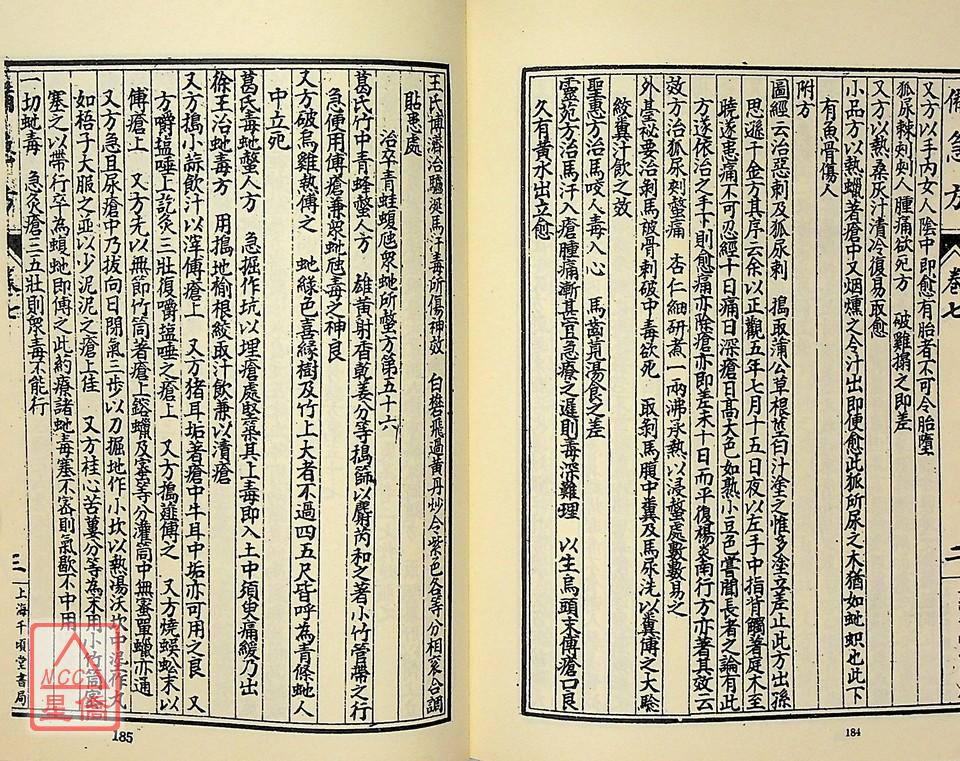 備急方 卷七 二
又方以手内女人陰中即愈有胎者不可令胎墮
狐尿棘刺刺人腫痛欲死方 破雞搨之即差
又方以熱桑灰汁漬冷復易取愈
小品方以熱蠟著瘡中又烟燻之令汁出即便愈此狐所尿之木猶如虵虵也此下
有魚骨傷人
附方
圖經云治惡刺及狐尿刺 搗取蒲公草根莖白汁塗之惟多塗立差止此方出孫
思邈千金方其序云余以正觀五年七月十五日夜以左手中指背觸著庭木至
曉遂患痛不可忍經十日痛日深瘡日高大色如熟小豆色嘗聞長者之論有此
方遂依治之手下則愈痛亦除瘡亦即差未十日而平復楊炎南行方亦著其效云
效方治狐尿刺螫痛 杏仁細研煮一兩沸承熱以浸螫處數數易之
外臺秘要治剥馬被骨刺破中毒欲死 取剥馬腹中糞及馬尿洗以糞傅之大驗
絞糞汁飲之效
聖惠方治馬咬人毒入心 馬齒莧湯食之差
靈苑方治馬汗入瘡腫痛漸甚宜急療之遲則毒深難理 以生烏頭末傅瘡口良
久有黃水出立愈
184
王氏博濟治驢涎馬汗毒所傷神效 白礬飛過黃丹炒令紫色各等分相衮合調
貼患處
治卒青蛙蝮虺衆虵所螫方第五十六
葛氏竹中青蜂螫人方 雄黃射香乾姜分等搗篩以麝芮和之著小竹管帶之行
急便用傅瘡兼衆虵虺毒之神良
又方破烏雞熱傅之 虵緑色喜緣樹及竹上大者不過四五尺皆呼為青條虵人
中立死
葛氏毒虵螫人方 急掘作坑以埋瘡處堅築其上毒即入土中須臾痛緩乃出
徐王治虵毒方 用搗地榆根絞取汁飲兼以漬瘡
又方搗小蒜飲汁以滓傅瘡上 又方猪耳垢著瘡中牛耳中垢亦可用之良 又
方嚼塩唾上訖灸三壯復嚼塩唾之瘡上 又方搗薤傅之 又方燒蜈蚣末以
傅瘡上 又方先以無節竹筒著瘡上鎔蠟及蜜等分灌筒中無蜜單蠟亦通
又方急且尿瘡中乃拔向日閉氣三步以刀掘地作小坎以熱湯沃坎中泥作丸
如梧子大服之並以少泥泥之瘡上佳 又方桂心苦蔞分等為末用小竹筒密
塞之以帶行卒為蝮虵即傅之此約療諸虵毒塞不密則氣歇不中用
一切虵毒 急灸瘡三五壯則衆毒不能行
三 上海千頃堂書局
185
MCC
星僑